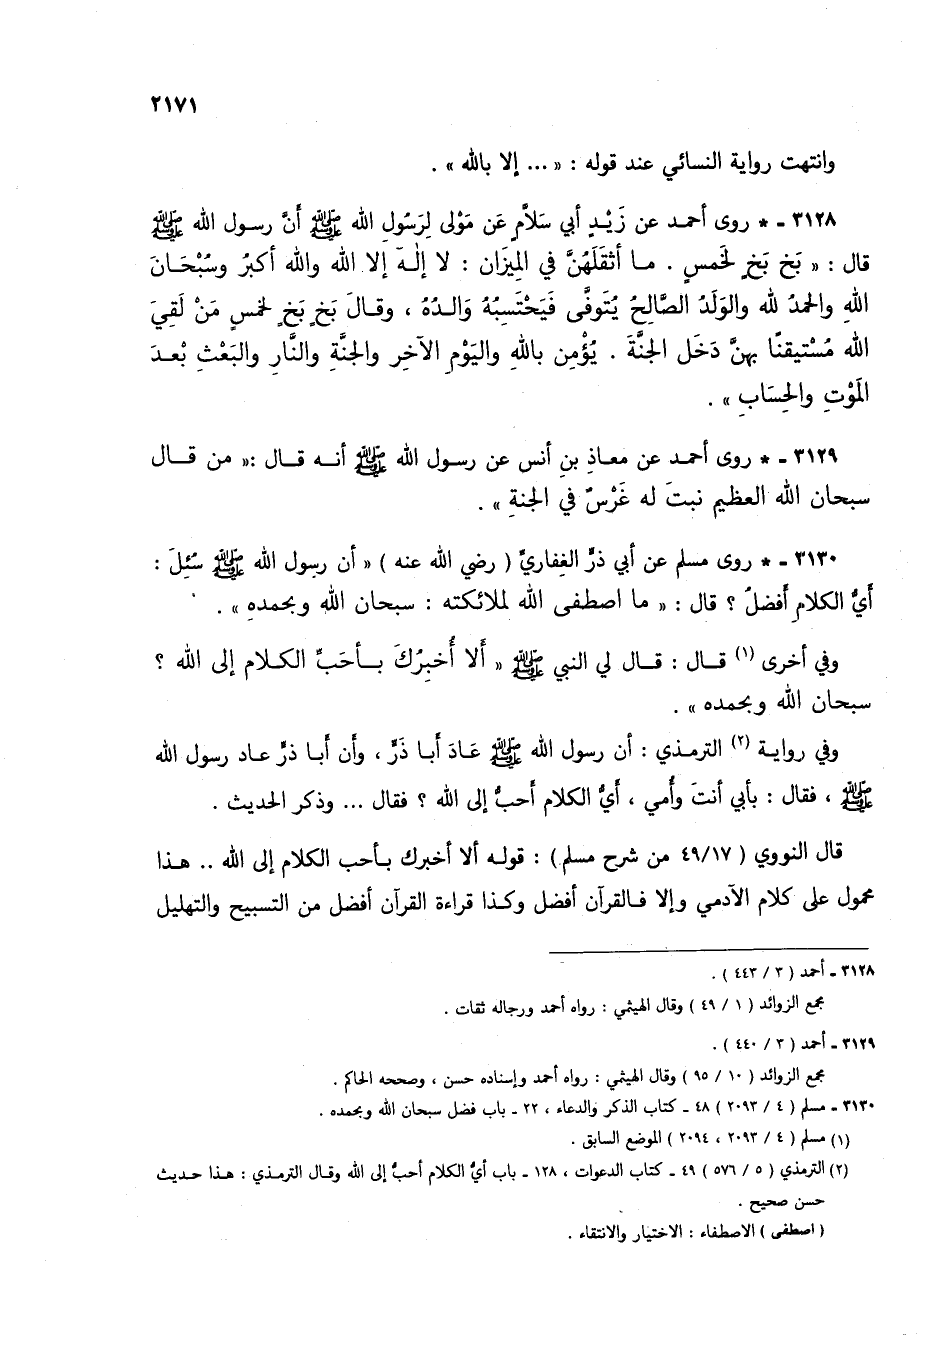 ٢١٧١
وانتهت رواية النسائي عند قوله : « ... إلا بالله » .
٣١٢٨ - * روى أحمد عن زَيْدٍ أبي سَلَّامٍ عَن مَوْلى لِرَسُولِ الله ﷺ أنَّ رسول الله ﷺ
قال : « بَخ بَخٍ لخَمسٍ . ما أثقَلَهُنَّ في المِيزَان : لا إلٰهَ إلا الله والله أكبرُ وسُبْحَانَ
اللهِ والحمدُ لله والوَلَدُ الصَّالِحُ يُتَوفَّى فَيَحْتَسِبُهُ وَالدُهُ ، وقالَ بَخٍ بَخٍ لخمسٍ مَنْ لَقِيَ
الله مُسْتيقنًا بهنَّ دَخَل الجنَّةَ . يُؤْمِن باللهِ واليَوْمِ الآخِرِ والجنَّةِ والنَّارِ والبَعْثِ بْعدَ
المَوْتِ والحِسَابِ » .
٣١٢٩ - * روى أحمد عن معاذِ بنِ أنس عن رسول الله ﷺ أنه قال :« من قال
سبحان الله العظيم نبتَ له غَرْسٌ في الجنةِ » .
٣١٣٠ - * روى مسلم عن أبي ذرٍّ الغِفاريِّ ( رضي الله عنه ) « أن رسول الله ﷺ سُئِلَ :
أيُّ الكلامِ أفضلُ ؟ قال : « ما اصطفى الله لملائكته : سبحان الله وبحمدهِ » .
وفي أخرى (١) قال : قال لي النبي ﷺ « أَلا أُخبِرُكَ بأحَبِّ الكلام إلى الله ؟
سبحان الله وبحمده » .
وفي رواية (٢) الترمذي : أن رسول الله ﷺ عَادَ أبا ذَرٍّ ، وأن أبا ذرٍّ عاد رسول الله
ﷺ ، فقال : بأبي أنتَ وأُمي ، أيُّ الكلام أحبُّ إلى الله ؟ فقال ... وذكر الحديث .
قال النووي ( ٤٩/١٧ من شرح مسلم ) : قوله ألا أخبرك بأحب الكلام إلى الله .. هذا
محمول على كلام الآدمي وإلا فالقرآن أفضل وكذا قراءة القرآن أفضل من التسبيح والتهليل
٣١٢٨ - أحمد ( ٣ / ٤٤٣ ) .
مجمع الزوائد ( ١ / ٤٩ ) وقال الهيثمي : رواه أحمد ورجاله ثقات .
٣١٢٩ - أحمد ( ٣ / ٤٤٠ ) .
مجمع الزوائد ( ١٠ / ٩٥ ) وقال الهيثمي : رواه أحمد وإسناده حسن ، وصححه الحاكم .
٣١٣٠ - مسلم ( ٤ / ٢٠٩٣ ) ٤٨ - كتاب الذكر والدعاء ، ٢٢ - باب فضل سبحان الله وبحمده .
(١) مسلم ( ٤ / ٢٠٩٣ ، ٢٠٩٤ ) الموضع السابق .
(٢) الترمذي ( ٥ / ٥٧٦ ) ٤٩ - كتاب الدعوات ، ١٢٨ - باب أيُّ الكلام أحبُّ إلى الله وقال الترمذي : هذا حديث
حسن صحيح .
( اصطفى ) الاصطفاء : الاختيار والانتقاء .